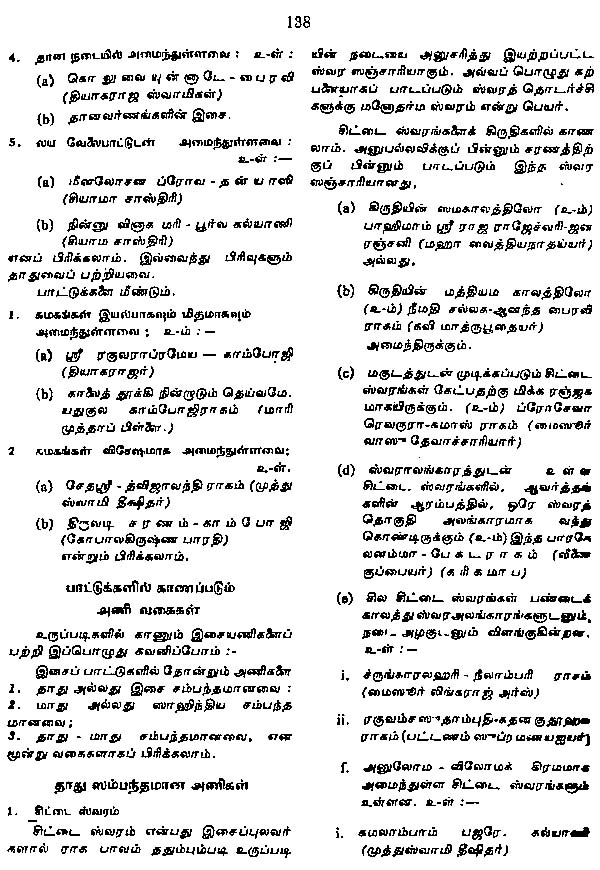 138
4. தான நடையில் அமைந்துள்ளவை : உ-ள் :
(a) கொ லு வை யு ன் னா டே - பை ர வி
(தியாகராஜ ஸ்வாமிகள்)
(b) தானவர்ணங்களின் இசை.
5. லய வேலைபாட்டுடன் அமைந்துள்ளவை :
உ-ள் :—
(a) மீனலோசன ப்ரோவ - த ன் யா ஸி
(சியாமா சாஸ்திரி)
(b) நின்னு வினாக மரி - பூர்வ கல்யாணி
(சியாம சாஸ்திரி)
எனப் பிரிக்கலாம். இவ்வைந்து பிரிவுகளும்
தாதுவைப் பற்றியவை.
பாட்டுக்களை மீண்டும்.
1. கமகங்கள் இயல்பாகவும் மிதமாகவும்
அமைந்துள்ளவை ; உ-ம் : —
(a) ஸ்ரீ ரகுவராப்ரமேய — காம்போஜி
(தியாகராஜர்)
(b) காலைத் தூக்கி நின்றாடும் தெய்வமே.
யதுகுல காம்போஜிராகம் (மாரி
முத்தாப் பிள்ளை.)
2 கமகங்கள் விசேஷமாக அமைந்துள்ளவை;
உ-ள்.
(a) சேதஸ்ரீ - த்விஜாவந்தி ராகம் (முத்து
ஸ்வாமி தீக்ஷிதர்)
(b) திருவடி ச ர ண ம் - கா ம் போ ஜி
(கோபாலகிருஷ்ண பாரதி)
என்றும் பிரிக்கலாம்.
பாட்டுக்களில் காணப்படும்
அணி வகைகள்
உருப்படிகளில் காணும் இசையணிகளைப்
பற்றி இப்பொழுது கவனிப்போம் :-
இசைப் பாட்டுகளில் தோன்றும் அணிகளை
1. தாது அல்லது இசை சம்பந்தமானவை :
2. மாது அல்லது ஸாஹித்திய சம்பந்த
மானவை ;
3. தாது - மாது சம்பந்தமானவை, என
மூன்று வகைகளாகப் பிரிக்கலாம்.
தாது ஸம்பந்தமான அணிகள்
1. சிட்டை ஸ்வரம்
சிட்டை ஸ்வரம் என்பது இசைப்புலவர்
களால் ராக பாவம் ததும்பும்படி உருப்படி
யின் நடையை அனுசரித்து இயற்றப்பட்ட
ஸ்வர ஸஞ்சாரியாகும். அவ்வப் பொழுது கற்
பனையாகப் பாடப்படும் ஸ்வரத் தொடர்ச்சி
களுக்கு மனோதர்ம ஸ்வரம் என்று பெயர்.
சிட்டை ஸ்வரங்களைக் கிருதிகளில் காண
லாம். அனுபல்லவிக்குப் பின்னும் சரணத்திற்
குப் பின்னும் பாடப்படும் இந்த ஸ்வர
ஸஞ்சாரியானது,
(a) கிருதியின் ஸமகாலத்திலோ (உ-ம்)
பாஹிமாம் ஸ்ரீ ராஜ ராஜேச்வரி-ஜன
ரஞ்சனி (மஹா வைத்தியநாதய்யர்)
அல்லது,
(b) கிருதியின் மத்தியம காலத்திலோ
(உ-ம்) நீமதி சல்லக-ஆனந்த பைரவி
ராகம் (கவி மாத்ருபூதையர்)
அமைந்திருக்கும்.
(c) மகுடத்துடன் முடிக்கப்படும் சிட்டை
ஸ்வரங்கள் கேட்பதற்கு மிக்க ரஞ்ஜக
மாகயிருக்கும். (உ-ம்) ப்ரோசேவா
ரெவருரா-கமாஸ் ராகம் (மைஸூர்
வாஸு தேவாச்சாரியார்)
(d) ஸ்வராலங்காரத்துடன் உ ள் ள
சிட்டை ஸ்வரங்களில், ஆவர்த்தங்
களின் ஆரம்பத்தில், ஒரே ஸ்வரத்
தொகுதி அலங்காரமாக வந்து
கொண்டிருக்கும் (உ-ம்) இந்த பாரகே
லனம்மா - பே க ட ரா க ம் (வீணை
குப்பையர்) (க ரி க மா ப)
(e) சில சிட்டை ஸ்வரங்கள் பண்டைக்
காலத்து ஸ்வரஅலங்காரங்களுடனும்,
நடை அழகுடனும் விளங்குகின்றன.
உ-ள் : —
i. ச்ருங்காரலஹரி - நீலாம்பரி ராகம்
(மைஸூர் லிங்கராஜ் அர்ஸ்)
ii. ரகுவம்சஸுதாம்புதி-கதன குதூஹல
ராகம் (பட்டணம் ஸுப்ரமணயஐயர்)
f. அனுலோம - விலோமக் கிரமமாக
அமைந்துள்ள சிட்டை ஸ்வரங்களும்
உள்ளன. உ-ள் :—
i. கமலாம்பாம் பஜரே. கல்யாணி
(முத்துஸ்வாமி தீஷிதர்)